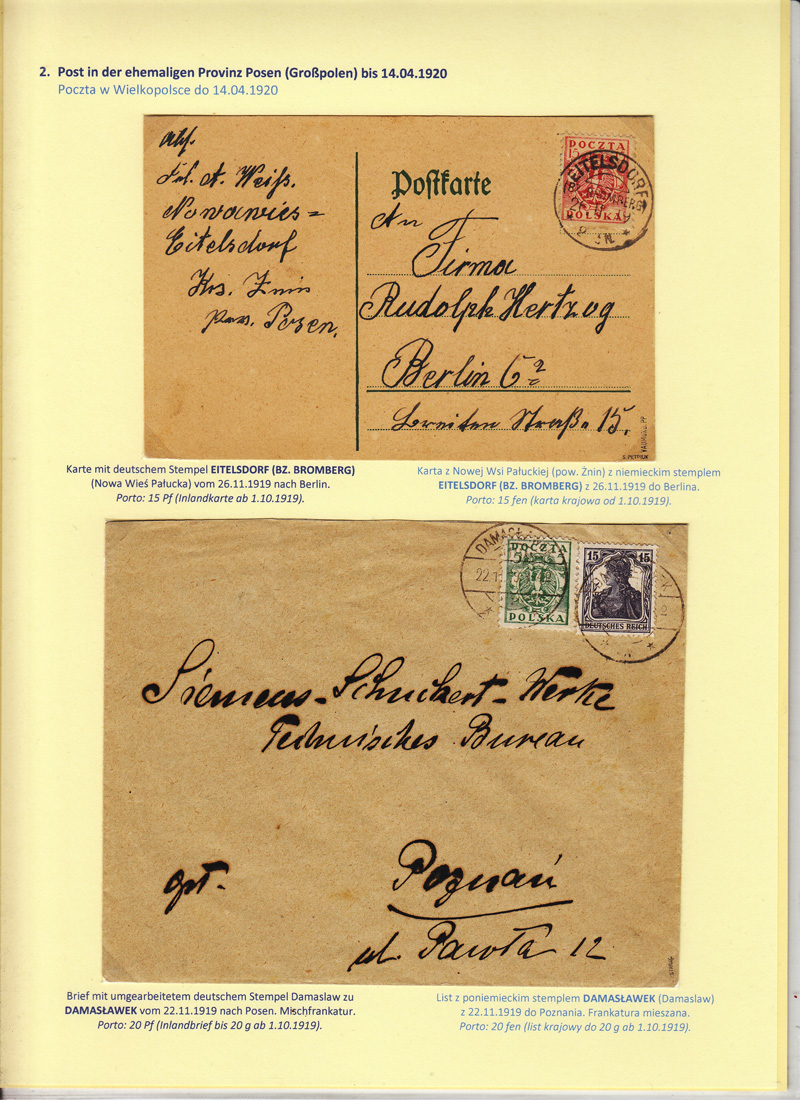 2. Post in der ehemaligen Provinz Posen (Großpolen) bis 14.04.1920
Poczta w Wielkopolsce do 14.04.1920
Abs.
Frl. A. Weiß.
Nowawies=
Eitelsdorf
Krs. Znin
Prov. Posen.
Postkarte
An
Firma
Rudolph Hertzog
Berlin C 2
Breiten Straße 15.
POCZTA
15
POLSKA
EITELSDORF
BROMBERG
S. PETRIUK
Karte mit deutschem Stempel EITELSDORF (BZ. BROMBERG)
(Nowa Wieś Pałucka) vom 26.11.1919 nach Berlin.
Porto: 15 Pf (Inlandkarte ab 1.10.1919).
Karta z Nowej Wsi Pałuckiej (pow. Żnin) z niemieckim stemplem
EITELSDORF (BZ. BROMBERG) z 26.11.1919 do Berlina.
Porto: 15 fen (karta krajowa od 1.10.1919).
DAMASŁ
22.1
POCZTA
POLSKA
15 15
DEUTSCHES REICH
Siemens-Schuckert-Werke
Technisches Bureau
Poznań
ul. Pawła 12
Brief mit umgearbeitetem deutschem Stempel Damaslaw zu
DAMASŁAWEK vom 22.11.1919 nach Posen. Mischfrankatur.
Porto: 20 Pf (Inlandbrief bis 20 g ab 1.10.1919).
List z poniemieckim stemplem DAMASŁAWEK (Damaslaw)
z 22.11.1919 do Poznania. Frankatura mieszana.
Porto: 20 fen (list krajowy do 20 g ab 1.10.1919).